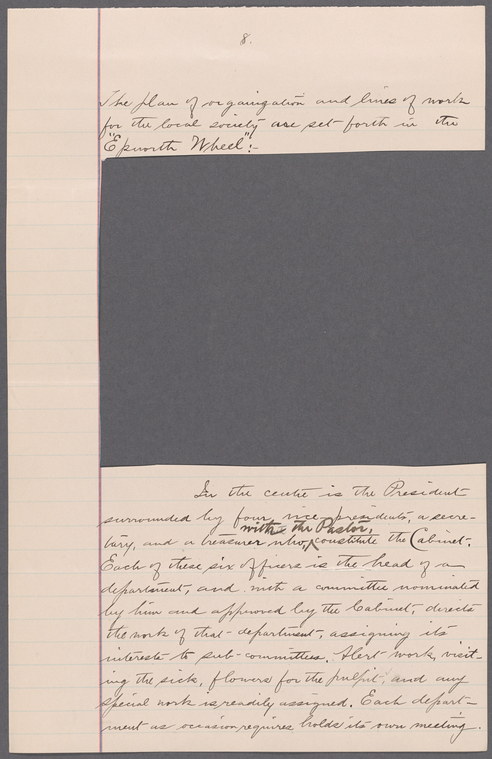 8.
The plan of organization and lines of work
for the local society are set forth in the
"Epworth Wheel":-
In the centre is the President
surrounded by four vice-presidents, a secre-
with the Pastor,
tary, and a treasurer who, constitute the Cabinet.
Each of these six officers is the head of a
department, and with a committee nominated
by him and approved by the Cabinet, directs
the work of that department, assigning its
interests to sub-committees. Alert work, visit-
ing the sick, flowers for the pulpit, and any
special work is readily assigned. Each depart-
ment as occasion requires holds its own meeting.